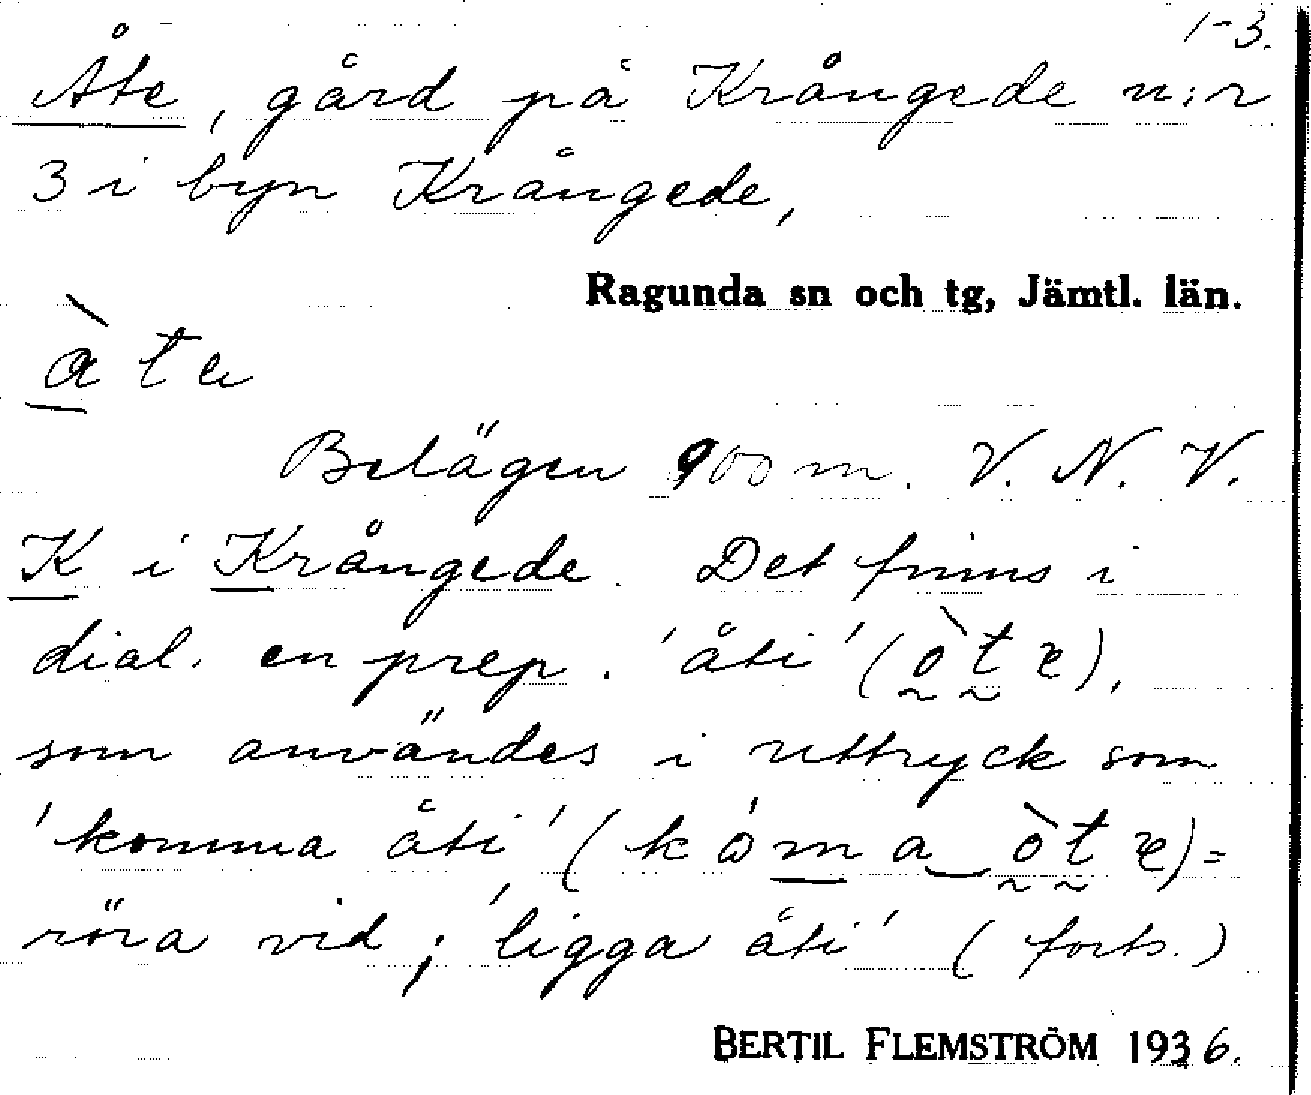 1-3.
Åte, gård på Krångede n:r
3 i byn Krångede,
Ragunda sn och tg, Jämtl. län.
àte
Belägen 900 m. V. N. V.
K i Krångede. Det finns i
dial. en prep. 'åti' (òtɐ),
som användes i uttryck som
'komma åti' (kóma òtɐ) =
röra vid; 'ligga åti' (forts.)
BERTIL FLEMSTRÖM 1936.